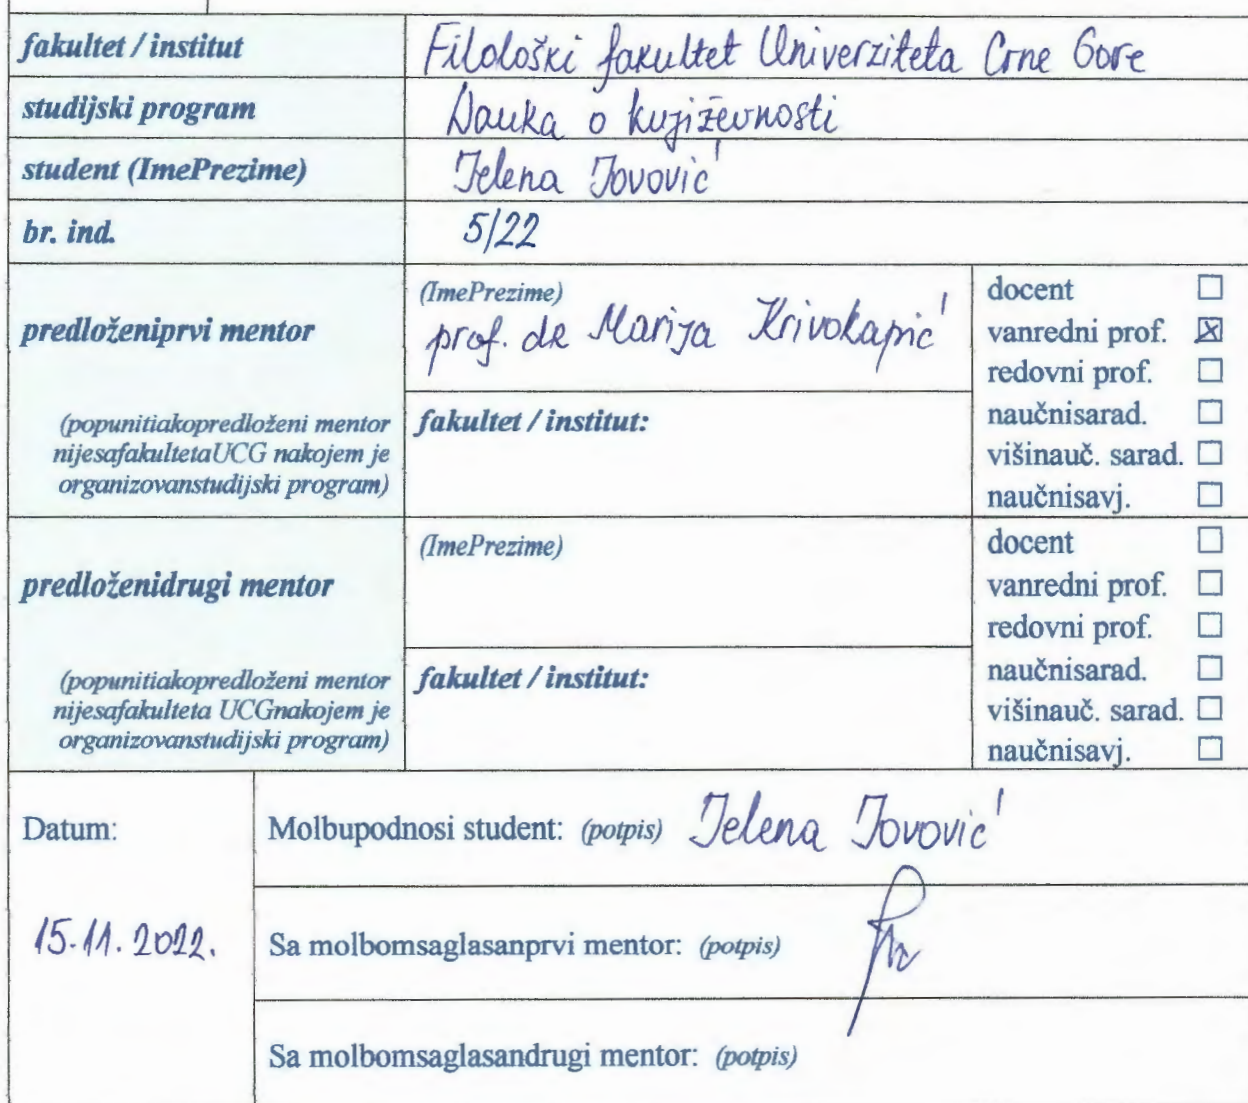 fakultet / institut Filološki fakultet Univerziteta Crne Gore
studijski program Nauka o književnosti
student (ImePrezime) Jelena Jovović
br. ind. 5/22
predloženiprvi mentor
(popunitiakopredloženi mentor
nijesafakultetaUCG nakojem je
organizovanstudijski program)
(ImePrezime)
prof. dr Marija Krivokapić
fakultet / institut:
docent ☐
vanredni prof. ☒
redovni prof. ☐
naučnisarad. ☐
višinauč. sarad. ☐
naučnisavj. ☐
predloženidrugi mentor
(popunitiakopredloženi mentor
nijesafakulteta UCGnakojem je
organizovanstudijski program)
(ImePrezime)
fakultet / institut:
docent ☐
vanredni prof. ☐
redovni prof. ☐
naučnisarad. ☐
višinauč. sarad. ☐
naučnisavj. ☐
Datum:
15.11.2022.
Molbupodnosi student: (potpis) Jelena Jovović
Sa molbomsaglasanprvi mentor: (potpis)
Sa molbomsaglasandrugi mentor: (potpis)